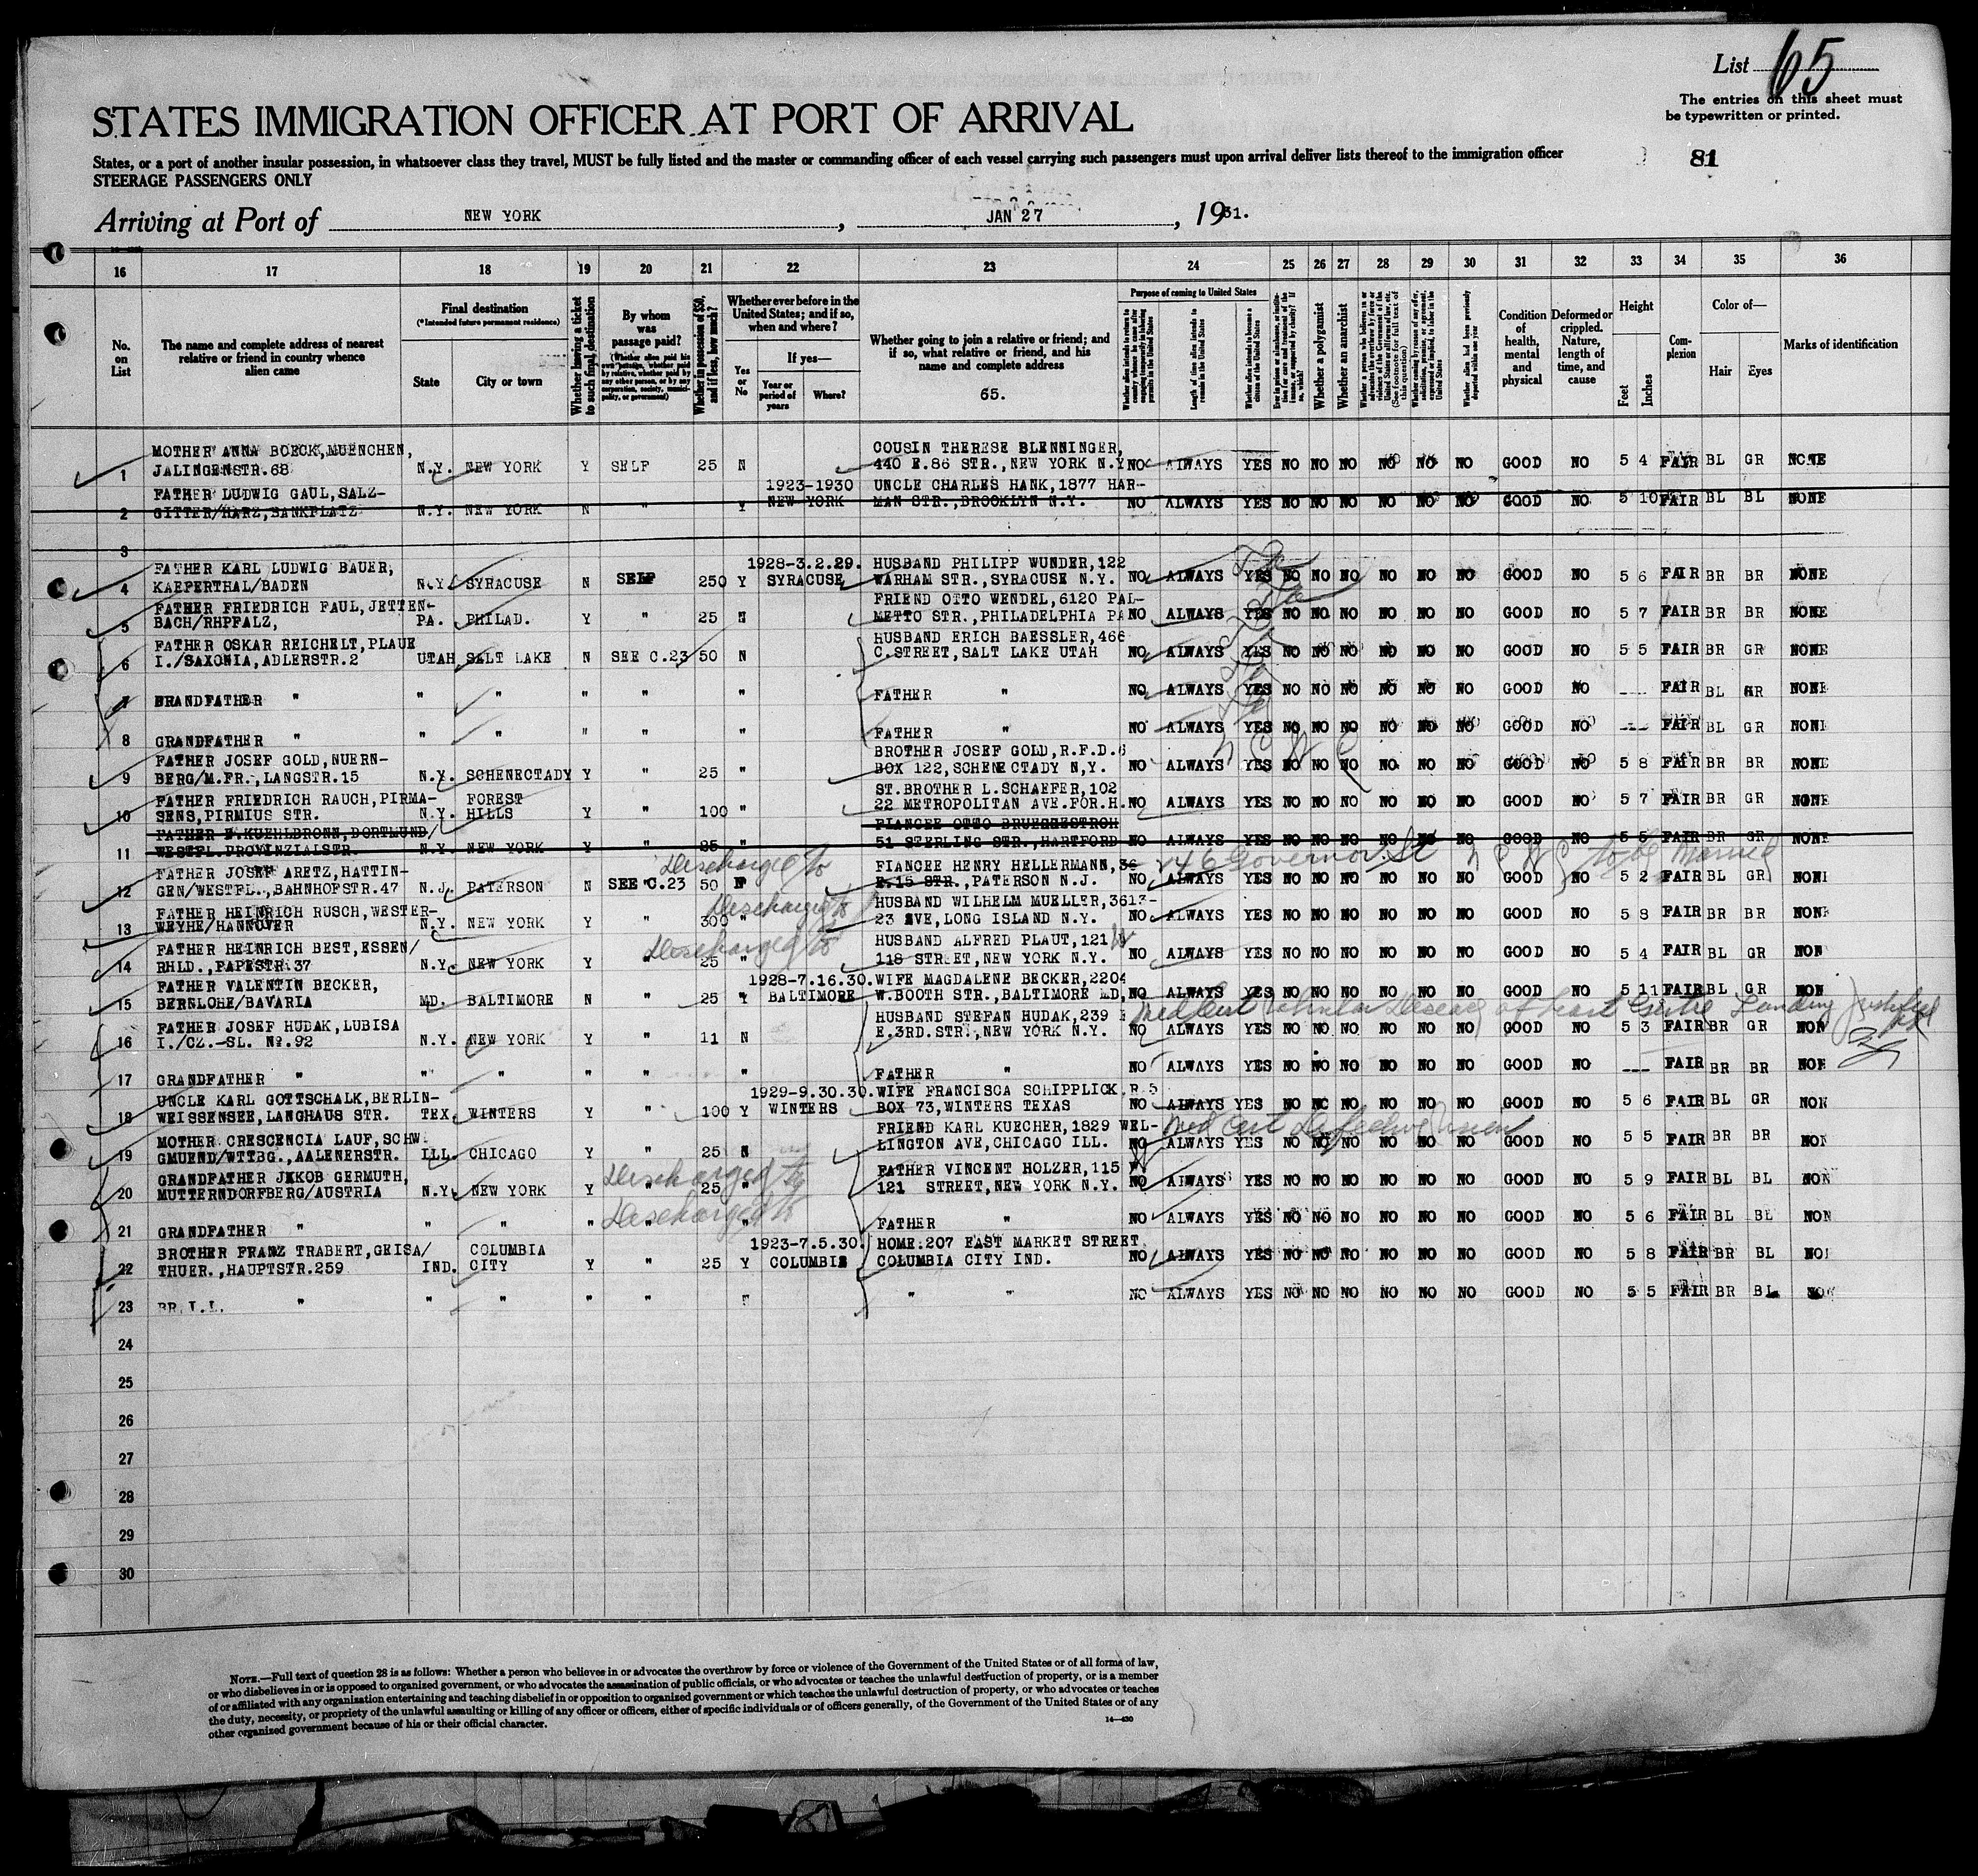 List 65
The entries on this sheet must
be typewritten or printed.
STATES IMMIGRATION OFFICER AT PORT OF ARRIVAL
States, or a port of another insular possession, in whatsoever class they travel, MUST be fully listed and the master or commanding officer of each vessel carrying such passengers must upon arrival deliver lists thereof to the immigration officer
STEERAGE PASSENGERS ONLY
81
Arriving at Port of NEW YORK, JAN 27, 1931.
16 17 18 19 20 21 22 23 24 25 26 27 28 29 30 31 32 33 34 35 36
No. on List
The name and complete address of nearest relative or friend in country whence alien came
Final destination
(*Intended future permanent residence)
State
City or town
Whether having a ticket to such final destination
By whom was passage paid?
(Whether alien paid his own passage, whether paid by relative, whether paid by any other person, or by any corporation, society, municipality, or government)
Whether in possession of $50, and if less, how much?
Whether ever before in the United States; and if so, when and where?
Yes or No
If yes—
Year or period of years
Where?
Whether going to join a relative or friend; and if so, what relative or friend, and his name and complete address
65.
Purpose of coming to United States
Whether alien intends to return to country whence he came after engaging temporarily in laboring pursuits in the United States
Length of time alien intends to remain in the United States
Whether alien intends to become a citizen of the United States
Whether a polygamist
Whether an anarchist
Whether alien had been previously deported within one year
Condition of health, mental and physical
Deformed or crippled. Nature, length of time, and cause
Height
Feet
Inches
Complexion
Color of—
Hair
Eyes
Marks of identification
1 MOTHER ANNA BOECK, MUENCHEN, JALINGENSTR.68 N.Y. NEW YORK Y SELF 25 N COUSIN THERESE BLENNINGER, 440 E.86 STR., NEW YORK N.Y. NO ALWAYS YES NO NO NO NO NO NO GOOD NO 5 4 FAIR BL GR NONE
2 FATHER LUDWIG GAUL, SALZ-GITTER/HARZ, BANKPLATZ N.Y. NEW YORK N " Y 1923-1930 NEW YORK UNCLE CHARLES HANK, 1877 HARMAN STR., BROOKLYN N.Y. NO ALWAYS YES NO NO NO NO NO NO GOOD NO 5 10 FAIR BL BL NONE
3
4 FATHER KARL LUDWIG BAUER, KAEPERTHAL/BADEN N.Y. SYRACUSE N SELF 250 Y 1928-3.2.29. SYRACUSE HUSBAND PHILIPP WUNDER, 122 WARHAM STR., SYRACUSE N.Y. NO ALWAYS YES NO NO NO NO NO NO GOOD NO 5 6 FAIR BR BR NONE
5 FATHER FRIEDRICH FAUL, JETTENBACH/RHPFALZ, PA. PHILAD. Y " 25 N FRIEND OTTO WENDEL, 6120 PALMETTO STR., PHILADELPHIA PA NO ALWAYS YES NO NO NO NO NO NO GOOD NO 5 7 FAIR BR BR NONE
6 FATHER OSKAR REICHELT, PLAUE I./SAXONIA, ADLERSTR.2 UTAH SALT LAKE N SEE C.23 50 N HUSBAND ERICH BAESSLER, 466 C.STREET, SALT LAKE UTAH NO ALWAYS YES NO NO NO NO NO NO GOOD NO 5 5 FAIR BR GR NONE
7 GRANDFATHER " " " " " " FATHER " NO ALWAYS YES NO NO NO NO NO NO GOOD NO --- FAIR BL GR NONE
8 GRANDFATHER " " " " " " FATHER " NO ALWAYS YES NO NO NO NO NO NO GOOD NO --- FAIR BL GR NONE
9 FATHER JOSEF GOLD, NUERNBERG/M.FR., LANGSTR.15 N.Y. SCHENECTADY Y " 25 " BROTHER JOSEF GOLD, R.F.D.6 BOX 122, SCHENECTADY N,Y. NO ALWAYS YES NO NO NO NO NO NO GOOD NO 5 8 FAIR BR BR NONE
10 FATHER FRIEDRICH RAUCH, PIRMASENS, PIRMIUS STR. N.Y. FOREST HILLS Y " 100 " ST.BROTHER L.SCHAEFER, 102 22 METROPOLITAN AVE.FOR.H. NO ALWAYS YES NO NO NO NO NO NO GOOD NO 5 7 FAIR BR GR NONE
11 FATHER F.KUEHLBRONN, DORTMUND/WESTFL.PROVINZIALSTR. N.Y. NEW YORK Y " 25 " FIANCEE OTTO BRUEGGESTROH 51 STERLING STR., HARTFORD NO ALWAYS YES NO NO NO NO NO NO GOOD NO 5 5 FAIR BR GR NONE
12 FATHER JOSEF ARETZ, HATTINGEN/WESTFL., BAHNHOFSTR.47 N.J. PATERSON N SEE C.23 Discharged to 50 N FIANCEE HENRY HELLERMANN, 36 E.15 STR., PATERSON N.J. 246 Governor St to be Married NO ALWAYS YES NO NO NO NO NO NO GOOD NO 5 2 FAIR BL GR NONE
13 FATHER HEINRICH RUSCH, WESTERWEYHE/HANNOVER N.Y. NEW YORK Y " Discharged to 300 " HUSBAND WILHELM MUELLER, 3613-23 AVE, LONG ISLAND N.Y. NO ALWAYS YES NO NO NO NO NO NO GOOD NO 5 8 FAIR BR BR NONE
14 FATHER HEINRICH BEST, ESSEN/RHLD., PAPESTR.37 N.Y. NEW YORK Y " Discharged to 25 " HUSBAND ALFRED PLAUT, 121 W 118 STREET, NEW YORK N.Y. NO ALWAYS YES NO NO NO NO NO NO GOOD NO 5 4 FAIR BL GR NON
15 FATHER VALENTIN BECKER, BERNLOHE/BAVARIA MD. BALTIMORE N " 25 Y 1928-7.16.30. BALTIMORE WIFE MAGDALENE BECKER, 2204 W.BOOTH STR., BALTIMORE MD. NO ALWAYS YES NO NO NO NO NO NO GOOD NO 5 11 FAIR BL GR NON
16 FATHER JOSEF HUDAK, LUBISA I./CZ.-SL. No.92 N.Y. NEW YORK Y " 11 N HUSBAND STEFAN HUDAK, 239 E.3RD.STR., NEW YORK N.Y. Med Cert Valvular Disease of heart Goitre Landing Justified NO ALWAYS YES NO NO NO NO NO NO GOOD NO 5 3 FAIR BR GR NON
17 GRANDFATHER " " " " " " FATHER " NO ALWAYS YES NO NO NO NO NO NO GOOD NO --- FAIR BR BR NON
18 UNCLE KARL GOTTSCHALK, BERLIN-WEISSENSEE, LANGHAUS STR. TEX. WINTERS Y " 100 Y 1929-9.30.30. WINTERS WIFE FRANCISCA SCHIPPLICK, R.5 BOX 73, WINTERS TEXAS NO ALWAYS YES NO NO NO NO NO NO GOOD NO 5 6 FAIR BL GR NON
19 MOTHER CRESCENCIA LAUF, SCHW. GMUEND/WTTBG., AALENERSTR. ILL. CHICAGO Y " 25 N FRIEND KARL KUECHER, 1829 WELLINGTON AVE, CHICAGO ILL. Med Cert Defective Vision NO ALWAYS YES NO NO NO NO NO NO GOOD NO 5 5 FAIR BR BR NON
20 GRANDFATHER JAKOB GERMUTH, MUTTERNDORFBERG/AUSTRIA N.Y. NEW YORK Y " Discharged to 25 " FATHER VINCENT HOLZER, 115 W 121 STREET, NEW YORK N.Y. NO ALWAYS YES NO NO NO NO NO NO GOOD NO 5 9 FAIR BL BL NON
21 GRANDFATHER " " " " " Discharged to " FATHER " NO ALWAYS YES NO NO NO NO NO NO GOOD NO 5 6 FAIR BL BL NON
22 BROTHER FRANZ TRABERT, GEISA/THUER., HAUPTSTR.259 IND. COLUMBIA CITY Y " 25 Y 1923-7.5.30. COLUMBIA HOME:207 EAST MARKET STREET COLUMBIA CITY IND. NO ALWAYS YES NO NO NO NO NO NO GOOD NO 5 8 FAIR BR BL NON
23 BR.I.L. " " " " " " " " NO ALWAYS YES NO NO NO NO NO NO GOOD NO 5 5 FAIR BR BL NON
24
25
26
27
28
29
30
NOTE.—Full text of question 28 is as follows: Whether a person who believes in or advocates the overthrow by force or violence of the Government of the United States or of all forms of law,
or who disbelieves in or is opposed to organized government, or who advocates the assassination of public officials, or who advocates or teaches the unlawful destruction of property, or is a member
of or affiliated with any organization entertaining and teaching disbelief in or opposition to organized government or which teaches the unlawful destruction of property, or who advocates or teaches
the duty, necessity, or propriety of the unlawful assaulting or killing of any officer or officers, either of specific individuals or of officers generally, of the Government of the United States or of any
other organized government because of his or their official character.
14—430